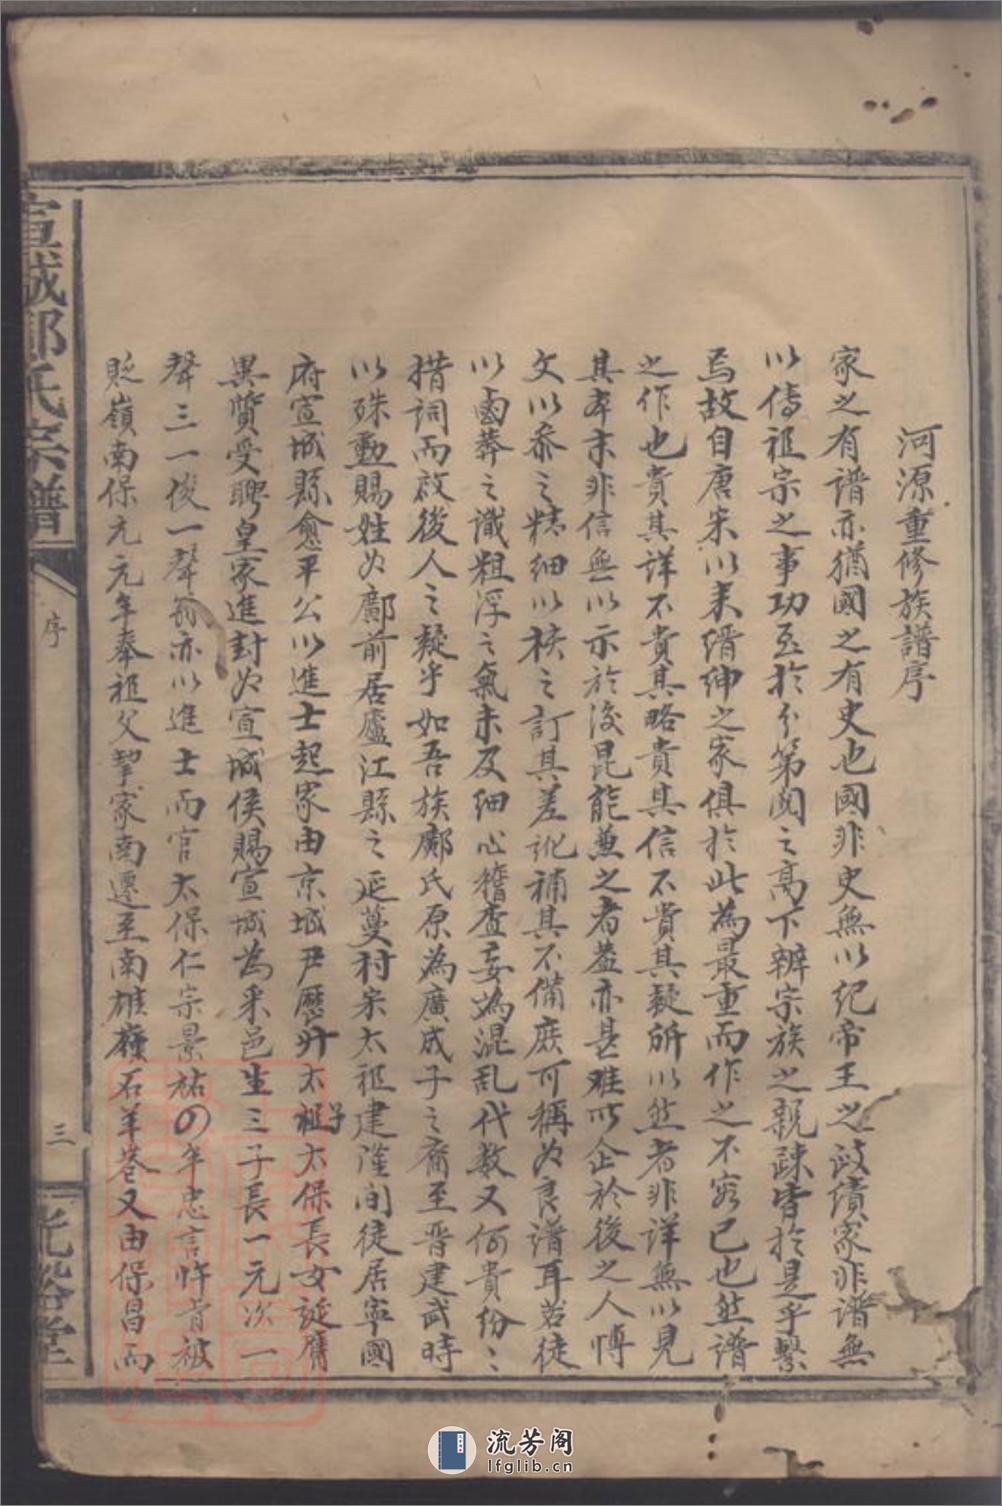 河源重修族譜序
家之有譜亦猶國之有史也國非史無以紀帝王之政績家非譜無
以傳祖宗之事功至於分第閥之高下辨宗族之親疎皆於是乎繫
焉故自唐宋以来缙绅之家俱於此為最重而作之不容已也然譜
之作也貴其詳不貴其略貴其信不貴其疑所以然者非詳無以見
其本末非信無以示於後昆能兼之者蓋亦甚难所企於後之人博
文以参之精细以核之訂其差訛補其不備庶可稱为良譜耳若徒
以鹵莽之識粗浮之氣未及细心稽查妄為混乱代数又何貴纷々
措词而啟後人之疑乎如吾族鄺氏原為廣成子之裔至晋建武時
以殊勳賜姓为鄺前居廬江縣之延蔓村宋太祖建隆间徒居寧國
府宣城縣愈平公以進士起家由京城尹歷升太子太保長女诞膺
異贊受聘皇家進封为宣城侯賜宣城為采邑生三子長一元次一
聲三一俊一聲翁亦以進士而官太保仁宗景祐の年忠言忤旨被
貶嶺南保元元年奉祖父挈家南遷至南雄嶺石羊巷又由保昌而
宣城鄺氏宗譜
序
三
光裕堂
流芳阁
lfglib.cn